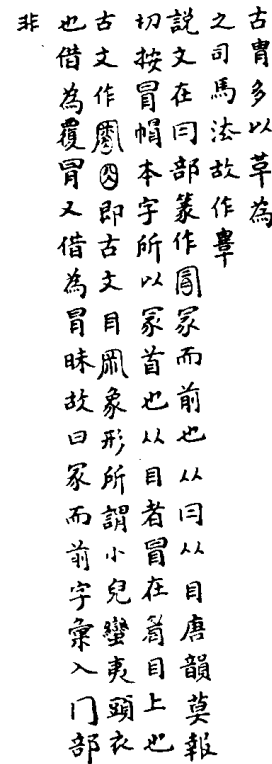 古冑多以革為
之司馬法故作
說文在冃部篆作冡而前也从冃从目唐韻莫報
切按冒帽本字所以冡首也从目者冒在著目上也
古文作即古文目象形所謂小兒蠻夷頭衣
也借為覆冒又借為冒昧故曰冡而前字彙入冂部
非